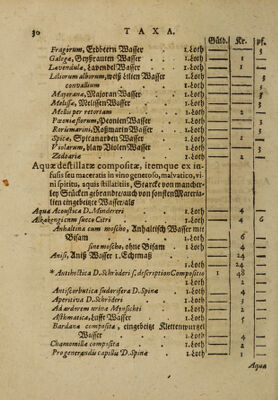 30 TAXA.
Güld. Kr. pf.
Fragorum, Erdbeern Wasser 1. Loth — — 3
Galegæ, Geyßrauten Wasser 1. Loth — 1
Lavendulæ, Lavendel Wasser 1. Loth — 1
Liliorum alborum, weiß Lilien Wasser 1. Loth — — 3
convallium 1. Loth — 1
Majoranæ, Majoran Wasser 1. Loth — — 3
Melissæ, Melissen Wasser 1. Loth — — 3
Mellis per retortam 1. Loth — 2
Pæoniæ florum, Peonien Wasser 1. Loth — — 3
Rorismarini, Roßmarin Wasser 1. Loth — — 3
Spicæ, Spicanarden Wasser 1. Loth — 2
Violarum, blaw Violen Wasser 1. Loth — — 3
Zedoariæ 1. Loth — 2
Aquæ destillatæ compositæ, itemque ex in-
fusis seu maceratis in vino generoso, malvatico, vi-
ni spiritu, aquis stillatitiis, Starcke von mancher-
ley Stücken gebrandte auch von sonsten Materia-
lien eingebeitzte Wasser als
Aqua Aconstica D. Mindereri 1. Loth — 4
Alkekengi cum succo Citri 1. Loth — 4 6
Anhaltina cum moscho, Anhaltisch Wasser mit
Bisam 1. Loth — 4
sine moscho, ohne Bisam 1. Loth — 4
Anisi, Aniß Wasser 1. Echtmaß — 24
1. Loth — 2
* Antihectica D. Schröderi s. descriptionCompositio 1 48
1. Loth — 2
Antiscorbutica sudorifera D. Spinæ 1. Loth — 4
Aperitiva D. Schröderi 1. Loth — 3
Ad ardorem urinæ Mynsichti 1. Loth — 2
Asthmatica, Lufft Wasser 1. Loth — 2
Bardanæ composita, eingebeitzt Klettenwurtzel
Wasser 1. Loth — 2
Chamomillæ composita 1. Loth — 2
Pro generandis capillis D. Spinæ 1. Loth — 3
Aqua